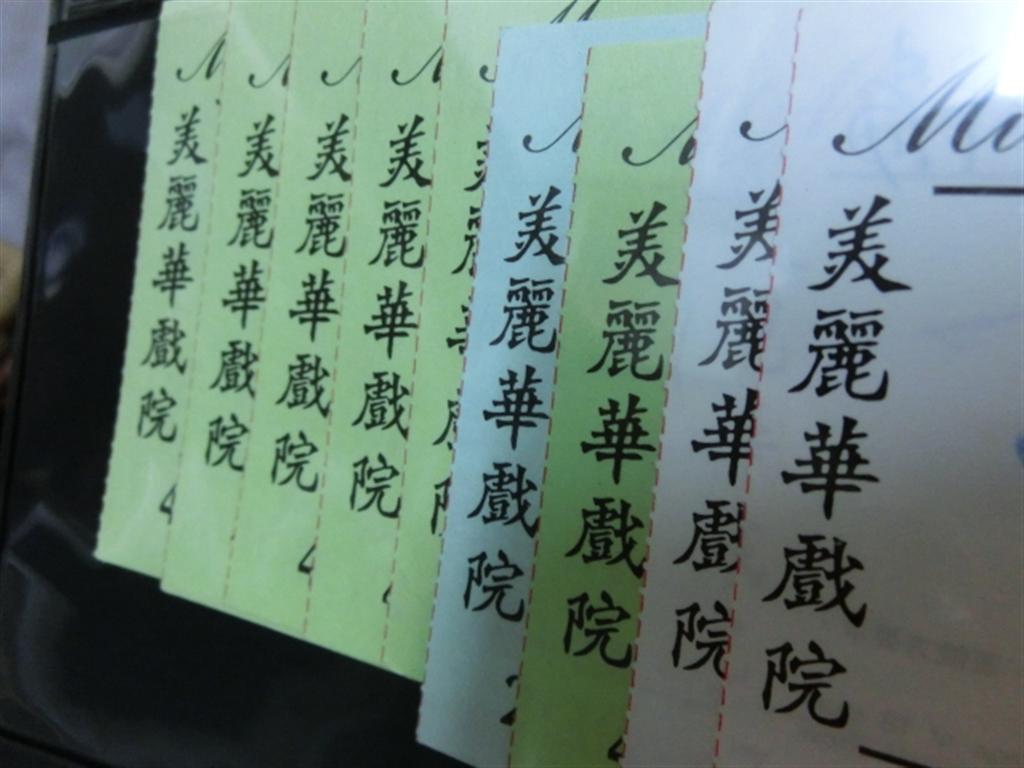 美麗華戲院
4
美麗華戲院
美麗華戲院
美麗華戲院
美麗華戲院
美麗華戲院
2
美麗華戲院
美麗華戲院
Mi
美麗華戲院